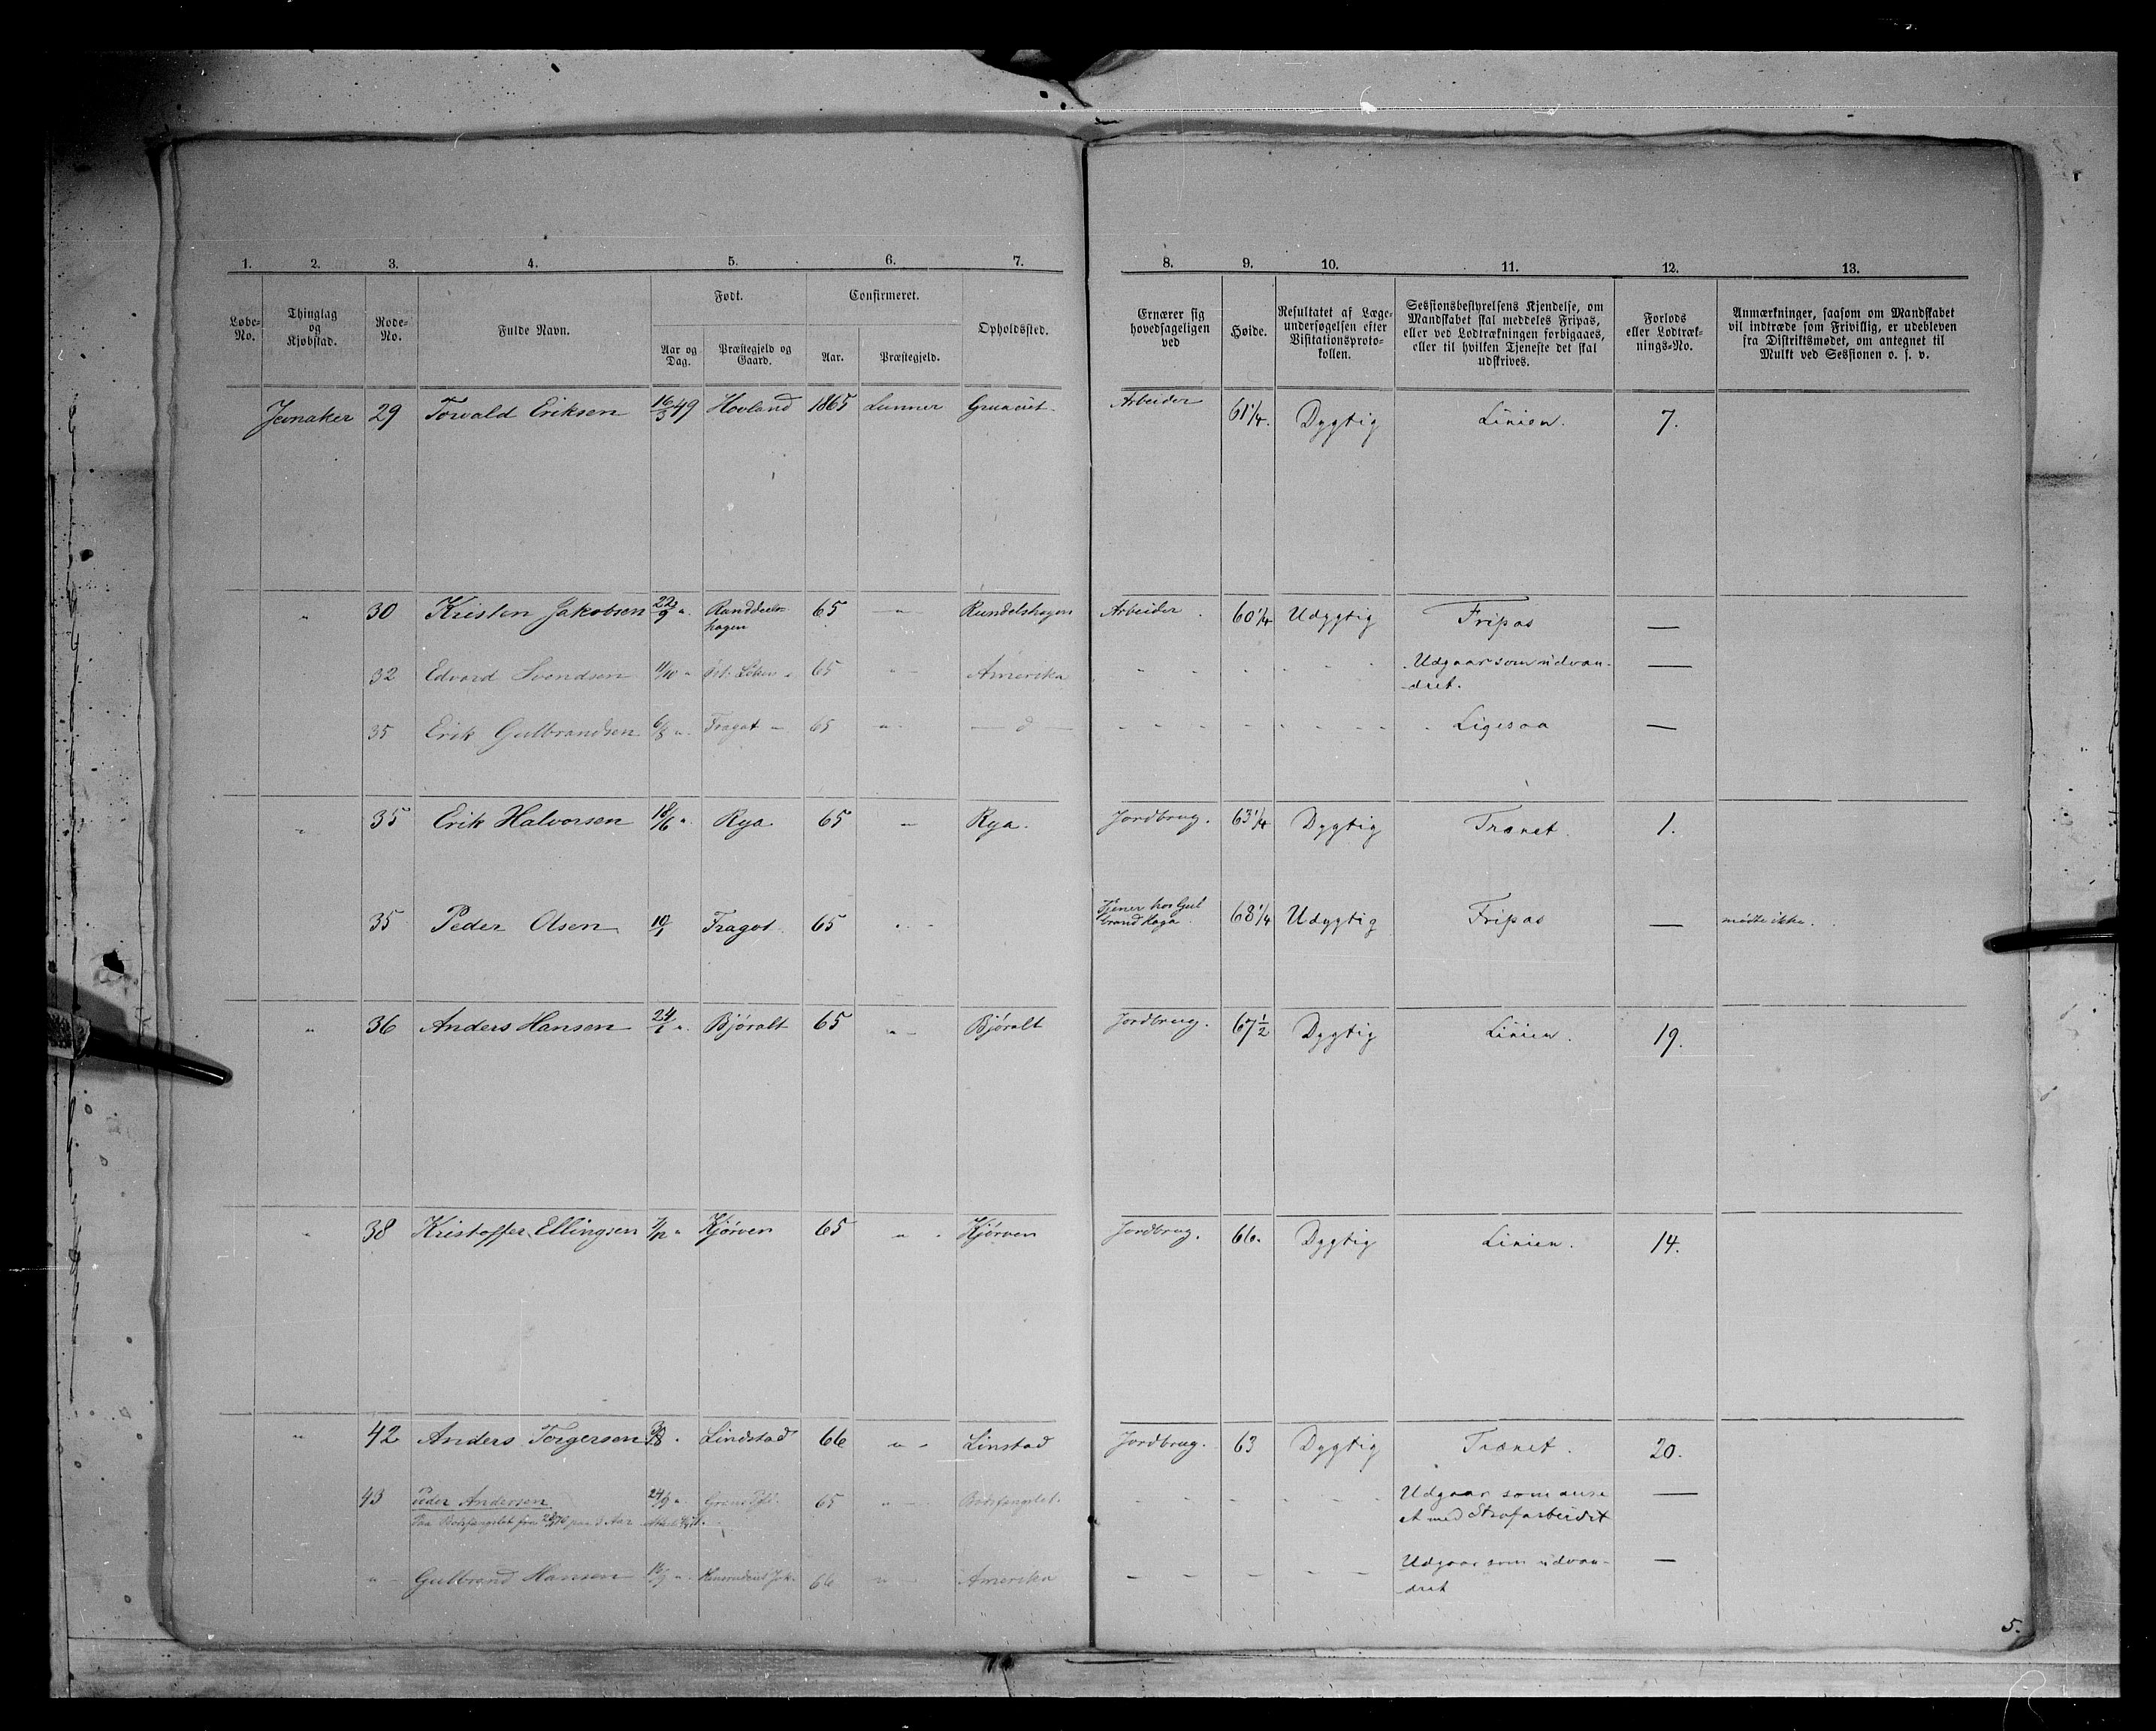 1. 2. 3. 4. 5. 6. 7. 8. 9. 10. 11. 12. 13.
Løbe-No. Thinglag og Kjøbstad. Rode-No. Fulde Navn. Født. Aar og Dag. Præstegjeld og Gaard. Confirmeret. Aar. Præstegjeld. Opholdssted. Ernærer sig hovedsageligen ved Høide. Resultatet af Lægeundersøgelsen efter Visitationsprotokollen. Sessionsbestyrelsens Kjendelse, om Mandskabet skal meddeles Fripas, eller ved Lodtrækningen forbigaaes, eller til hvilken Tjeneste det skal udskrives. Forlods eller Lodtræknings-No. Anmærkninger, saasom om Mandskabet vil indtræde som Frivillig, er udebleven fra Distriktsmødet, om antegnet til Mulkt ved Sessionen o. s. v.
Jevnaker 29 Torvald Eriksen 16/3 49 Hovland 1865 Lunner Arbeider 61 1/4. Dygtig Linien. 7.
" 30 Kristen Jakobsen 22/9 " Randdels-hagen 65 " Rundelshagen Arbeider 60 1/4 Udygtig Fripas —
32 Edvard Svendsen 11/10 " 65 " Amerika Udgaar som udvan-
dret. —
35 Erik Gulbrandsen 6/8 " Fragot 65 " — d — Ligesaa —
" 35 Erik Halvorsen 18/6 " Rya 65 " Rya. Jordbrug. 63 1/4 Dygtig Trænet. 1.
35 Peder Olsen 10/1 Fragot 65 " Tjener hos Gul
brand Haga 68 1/4 Udygtig Fripas — mødte ikke.
" 36 Anders Hansen 24/1 " Bjøralt 65 " Bjøralt Jordbrug. 67 1/2 Dygtig Linien. 19.
" 38 Kristoffer Ellingsen 7/12 " Kjørven 65 " Kjørven Jordbrug. 66. Dygtig Linien. 14.
" 42 Anders Torgersen Lindstad 66 " Linstad Jordbrug. 63 Dygtig Trænet. 20.
43 Peder Andersen 24/9 " Grans Pgld. 65 " Bodsfængslet. Udgaar som anse
et med Strafarbeidet —
Paa Bodsfængslet fra paa 3 Aar
" Gulbrand Hansen 66 " Amerika Udgaar som udvan-
dret —
5.